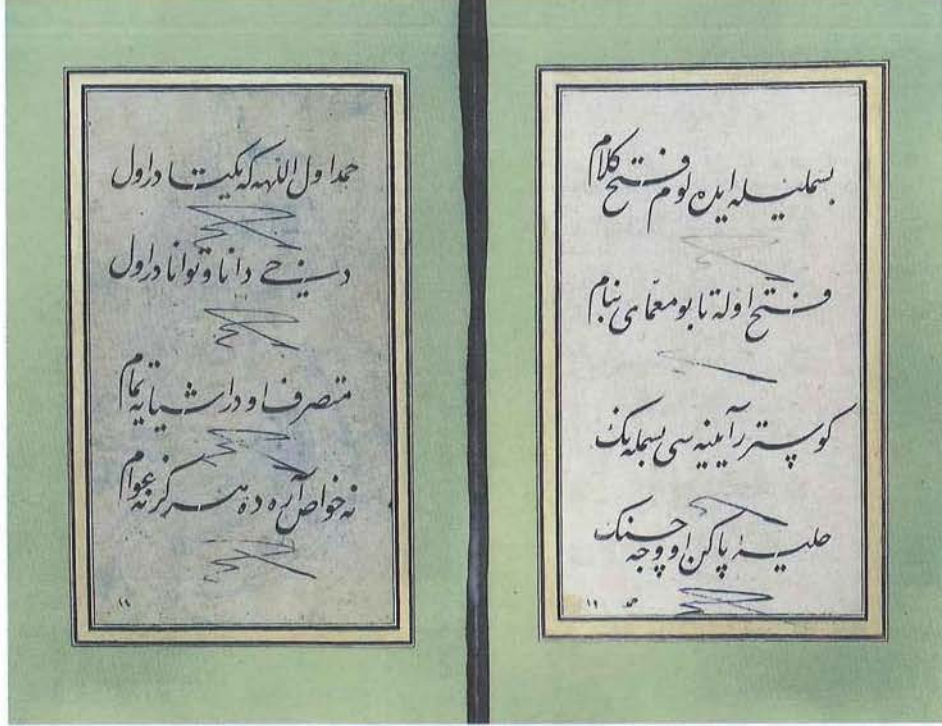 بسملیله ایده لوم فتح کلام
فتح اوله تا بو معمای بنام
کوسترر آیینه سی بسمله نک
حلیهٔ پاکن او وجه حسنک
حمد
حمد اول اللهه که یکتا در اول
حی دانا و توانا در اول
متصرف او در اشیایه تمام
نه خواص آره ده هرکز نه عوام